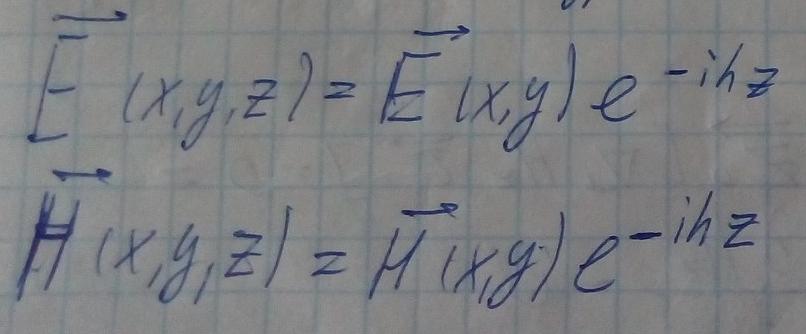 $\vec{E}(x,y,z) = \vec{E}(x,y)e^{-ihz}$
$\vec{H}(x,y,z) = \vec{H}(x,y)e^{-ihz}$